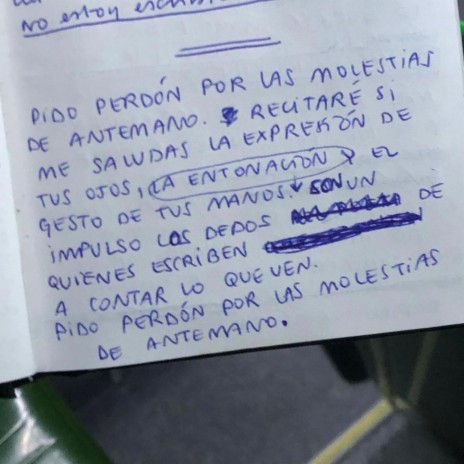 NO ESTOY
PIDO PERDÓN POR LAS MOLESTIAS
DE ANTEMANO. RECITARÉ SI
ME SALUDAS LA EXPRESIÓN DE
TUS OJOS, LA ENTONACIÓN Y EL
GESTO DE TUS MANOS. SON UN
IMPULSO LOS DEDOS DE
QUIENES ESCRIBEN
A CONTAR LO QUE VEN.
PIDO PERDÓN POR LAS MOLESTIAS
DE ANTEMANO.